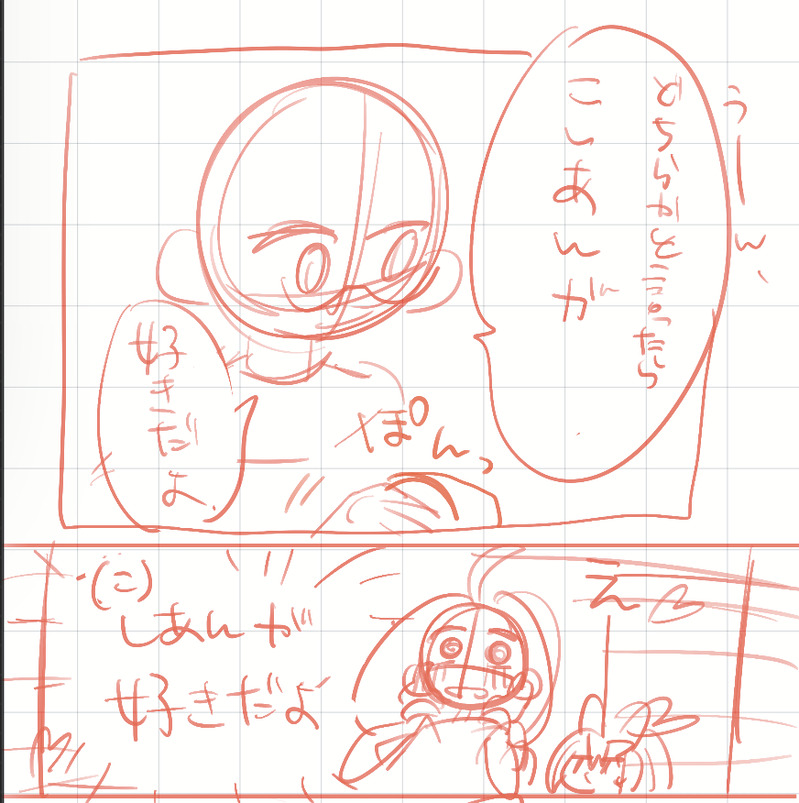 うーん、
どちらかと言ったら
こしあんが
好きだよ、
ぽんっ
えっ
(こ)
しあんが
好きだよ